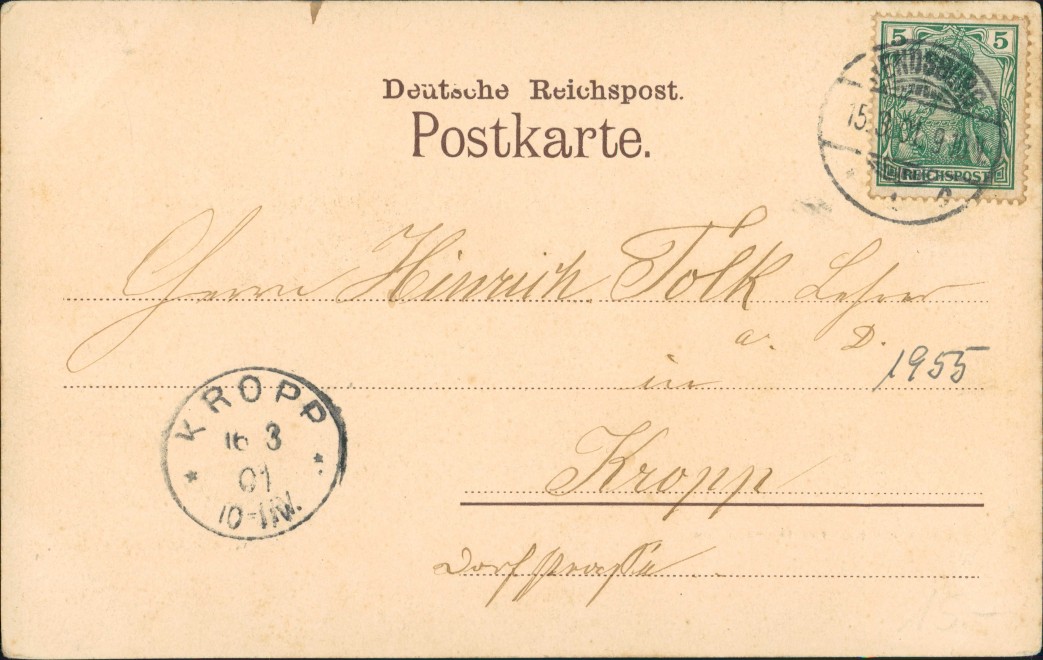 5 5
RENDSBURG
15.3.01. 9-10
REICHSPOST
Deutsche Reichspost.
Postkarte.
Herrn Hinrich Tolk Lehrer
a. D.
in
1955
Kropp
Dorfstraße
KROPP
16 3
01
10-11V.